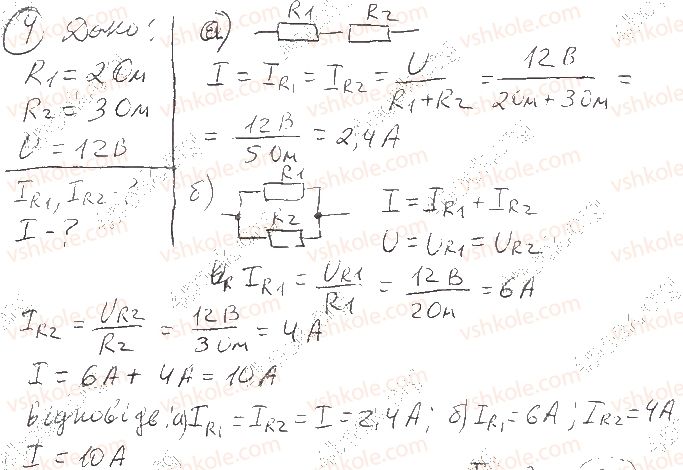 4 Дано:
R1 = 2 Ом
R2 = 3 Ом
U = 12 В
IR1, IR2 - ?
I - ?
а) R1 R2
I = IR1 = IR2 = U / (R1 + R2) = 12 В / (2 Ом + 3 Ом) =
= 12 В / 5 Ом = 2,4 А
б) R1 R2
I = IR1 + IR2
U = UR1 = UR2
IR1 = UR1 / R1 = 12 В / 2 Ом = 6 А
IR2 = UR2 / R2 = 12 В / 3 Ом = 4 А
I = 6 А + 4 А = 10 А
Відповідь: а) IR1 = IR2 = I = 2,4 А; б) IR1 = 6 А; IR2 = 4 А
I = 10 А
vshkole.com